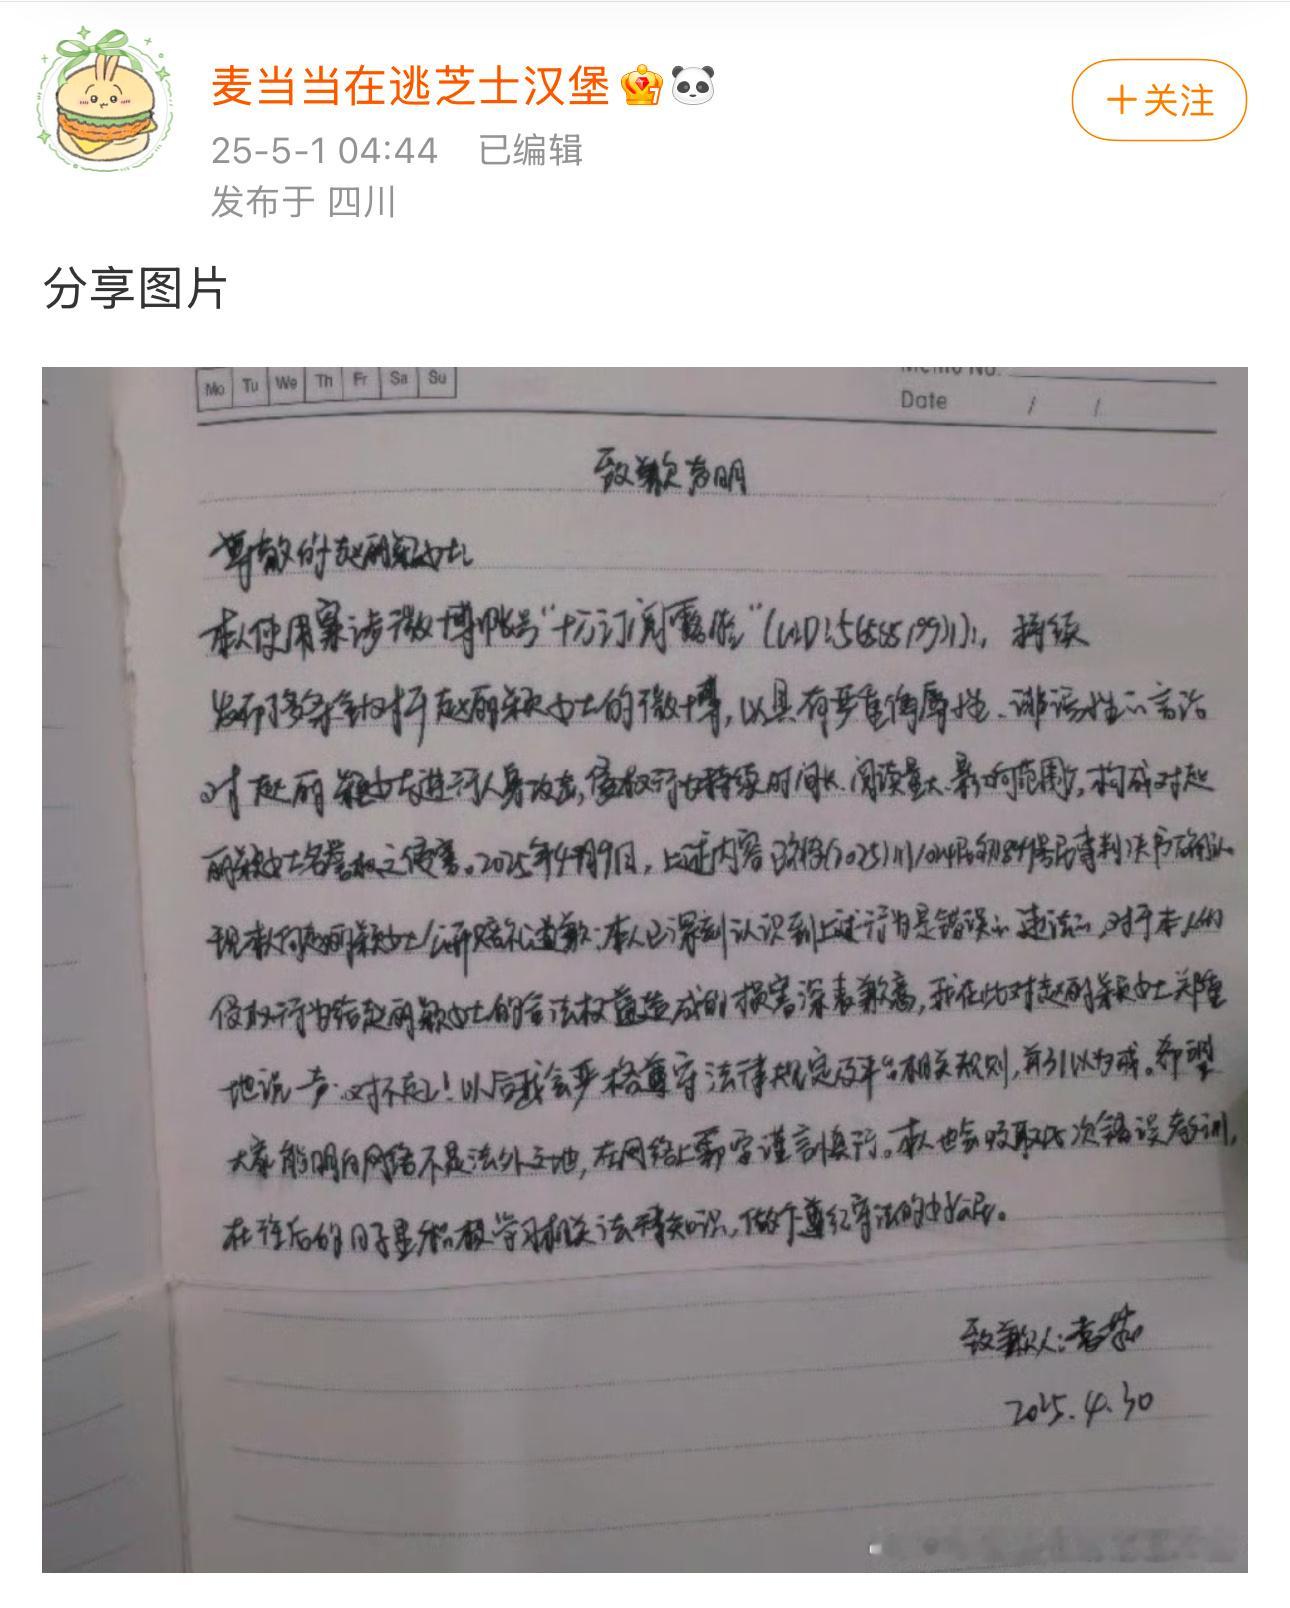 麦当当在逃芝士汉堡
+关注
25-5-1 04:44 已编辑
发布于 四川
分享图片
Mo Tu We Th Fr Sa Su
Memo No.
Date / /
致歉声明
尊敬的赵丽颖女士
本人使用案涉微博账号"十元订阅露脸"(UID:5658519931):，持续
发布了多条针对于赵丽颖女士的微博，以具有严重侮辱性、诽谤性的言论
对赵丽颖女士进行人身攻击，侵权行为持续时间长、阅读量大、影响范围广，构成对赵
丽颖女士名誉权之侵害。2025年4月9日，上述内容已经(2025)川1024民初84号民事判决书确认。
现本人向赵丽颖女士公开赔礼道歉：本人已深刻认识到上述行为是错误的、违法的，对于本人的
侵权行为给赵丽颖女士的合法权益造成的损害深表歉意，我在此对赵丽颖女士郑重
地说一声：对不起！以后我会严格遵守法律规定及平台相关规则，并引以为戒。希望
大家能明白网络不是法外之地，在网络上需要谨言慎行。本人也会吸取此次错误教训，
在往后的日子里积极学习相关法律知识，做个遵纪守法的好公民。
致歉人：
2025.4.30